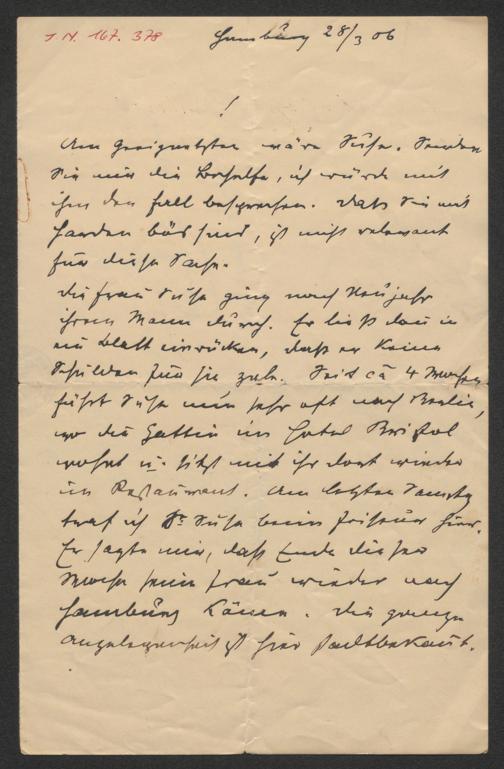 I. N. 167.378
Hamburg 28/3 06
!
Am geeignetsten wäre Suse. Senden
Sie mir die Behelfe, ich würde mit
ihm den Fall besprechen. Daß Sie mit
Harden bös sind, ist nicht relevant
für diese Sache.
Die Frau Suse ging nach Neujahr
ihrem Mann durch. Er ließ dan in
ein Blatt einrücken, daß er keine
Schulden für sie zale. Seit ca 4 Wochen
fährt Suse nun sehr oft nach Berlin,
wo die Gattin im Hotel Bristol
wohnt u. sitzt mit ihr dort wieder
im Restaurant. Am letzten Samstag
traf ich Dr Suse beim Friseur hier.
Er sagte mir, daß Ende dieser
Woche seine Frau wieder nach
Hamburg käme. Die ganze
Angelegenheit ist hier stadtbekant.